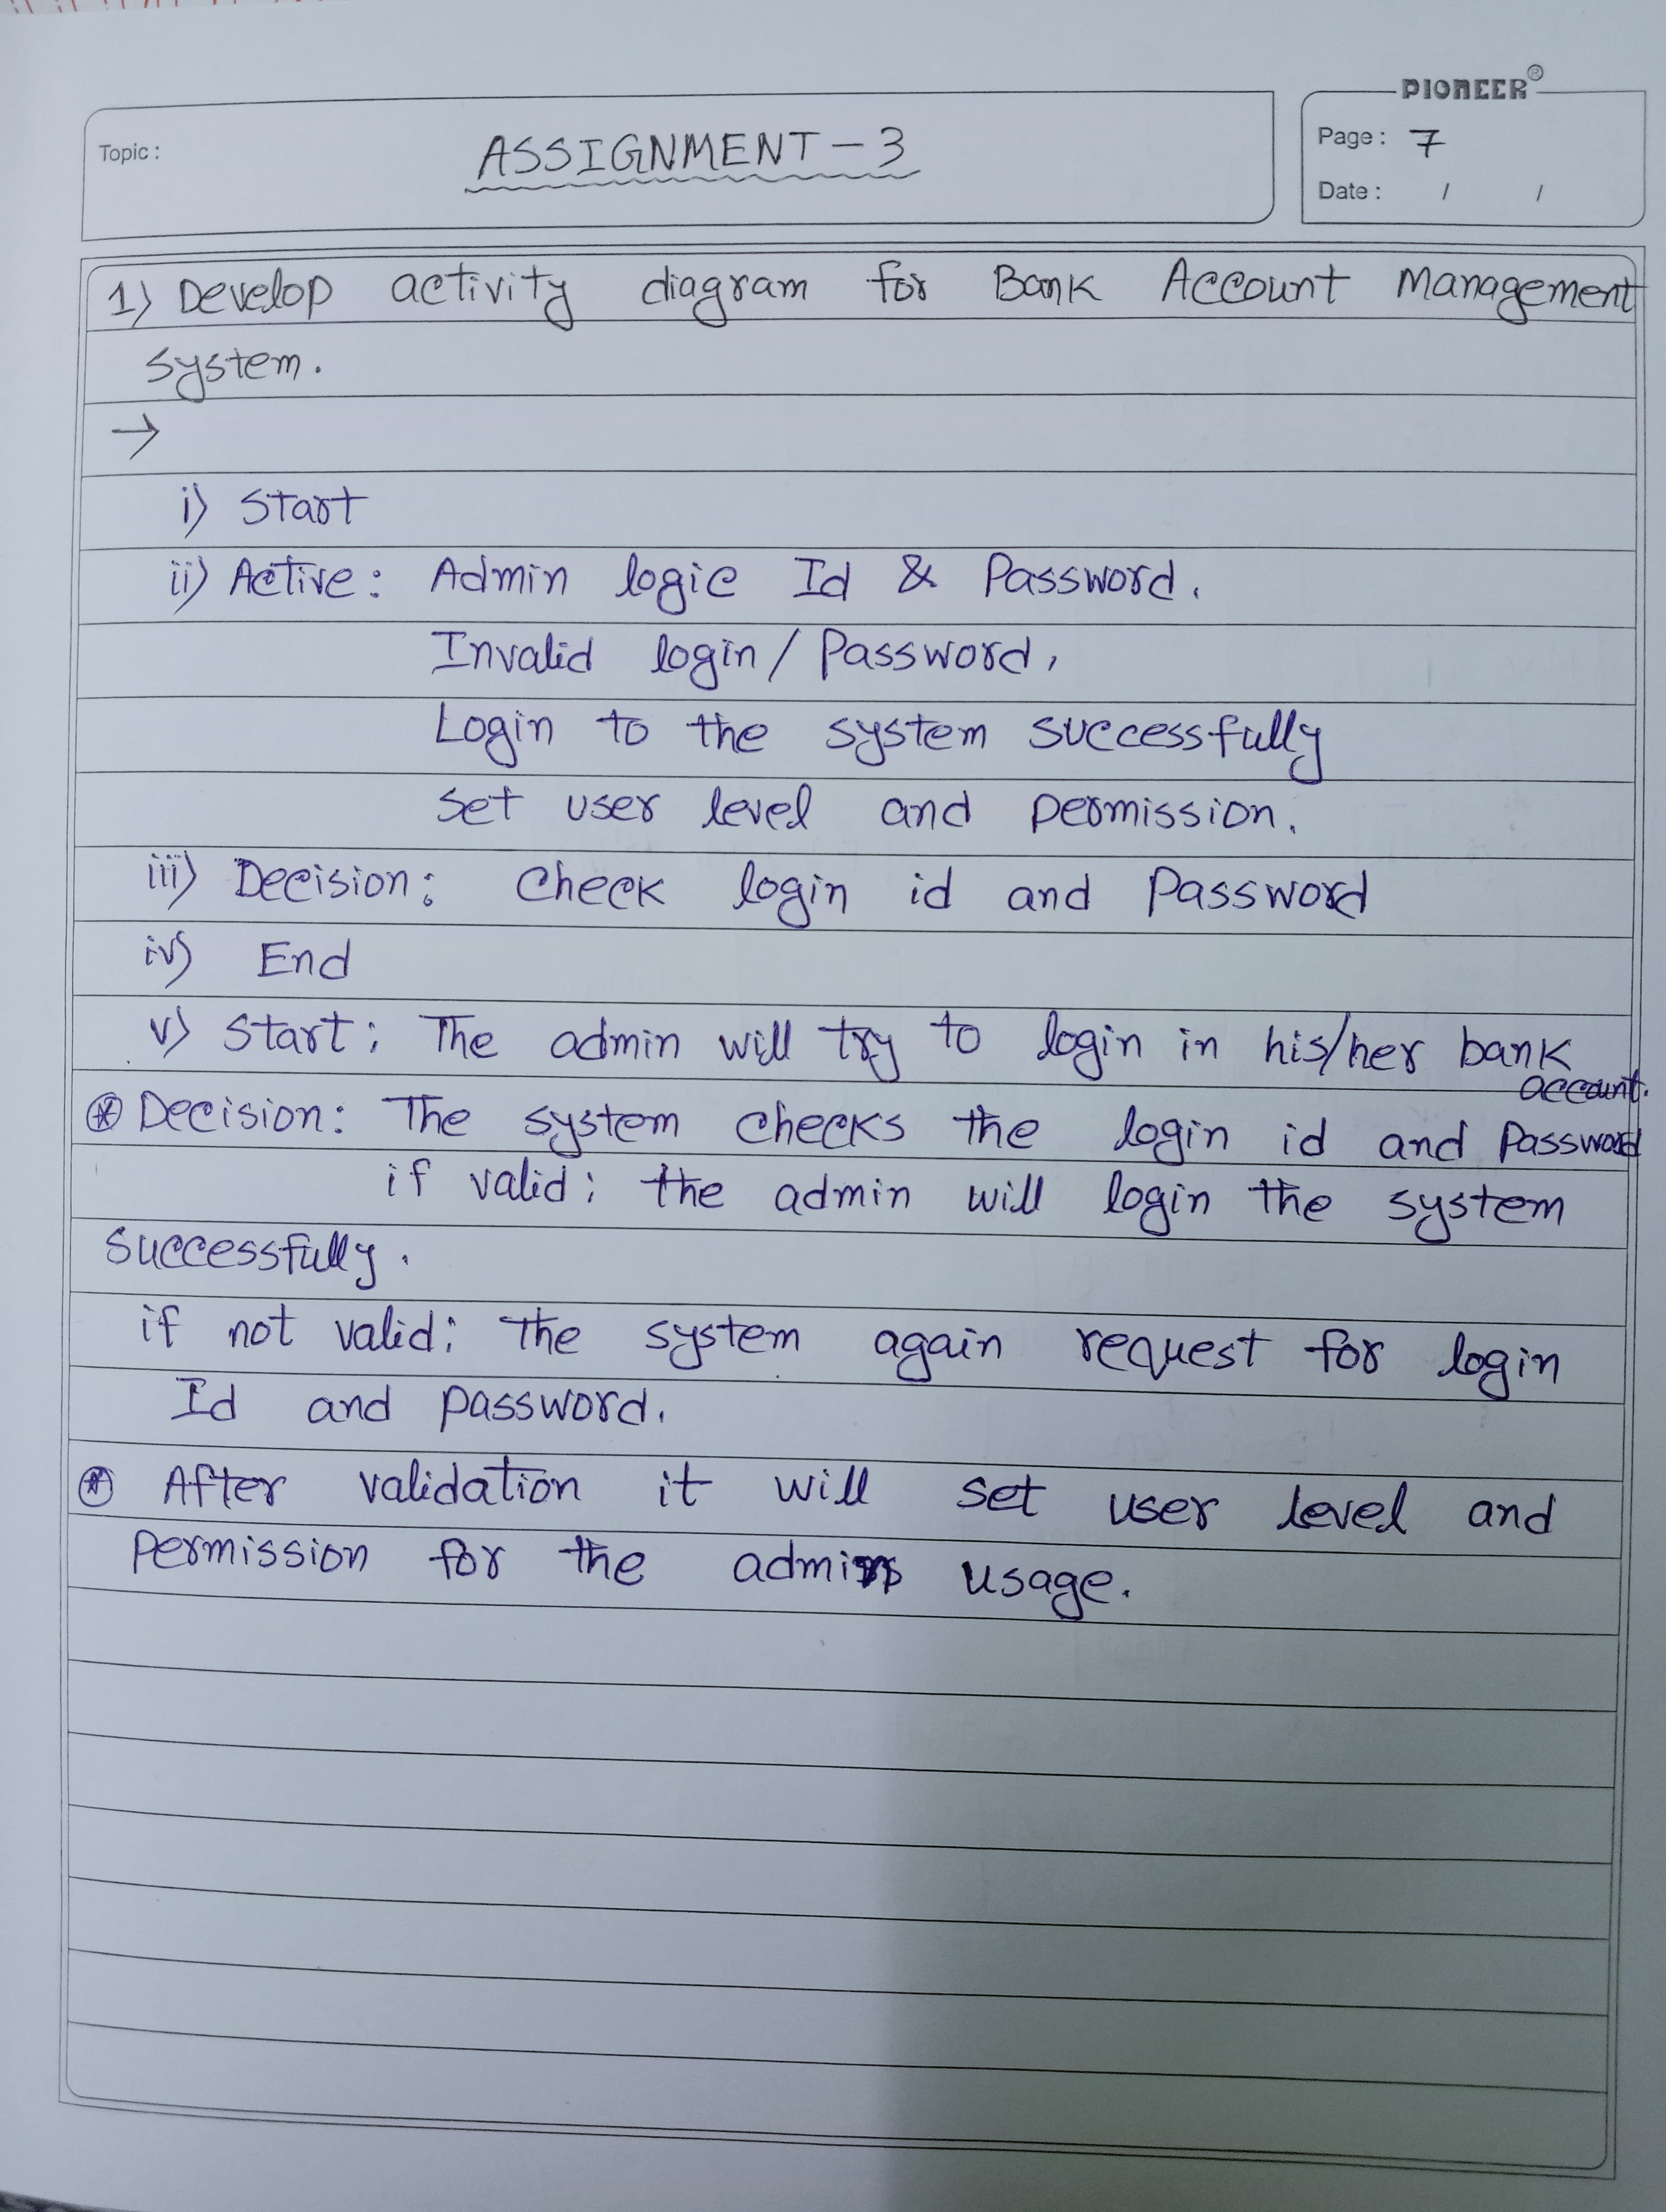 PIONEER®
Topic :
ASSIGNMENT - 3
Page : 7
Date : / /
1) Develop activity diagram for Bank Account Management
system.
→
i) Start
ii) Active: Admin logic Id & Password.
Invalid login / Password,
Login to the system successfully
set user level and permission.
iii) Decision: check login id and Password
iv) End
v) Start: The admin will try to login in his/her bank
account.
⊛ Decision: The system checks the login id and Password
if valid: the admin will login the system
successfully.
if not valid: The system again request for login
Id and password.
⊛ After validation it will set user level and
Permission for the admins usage.